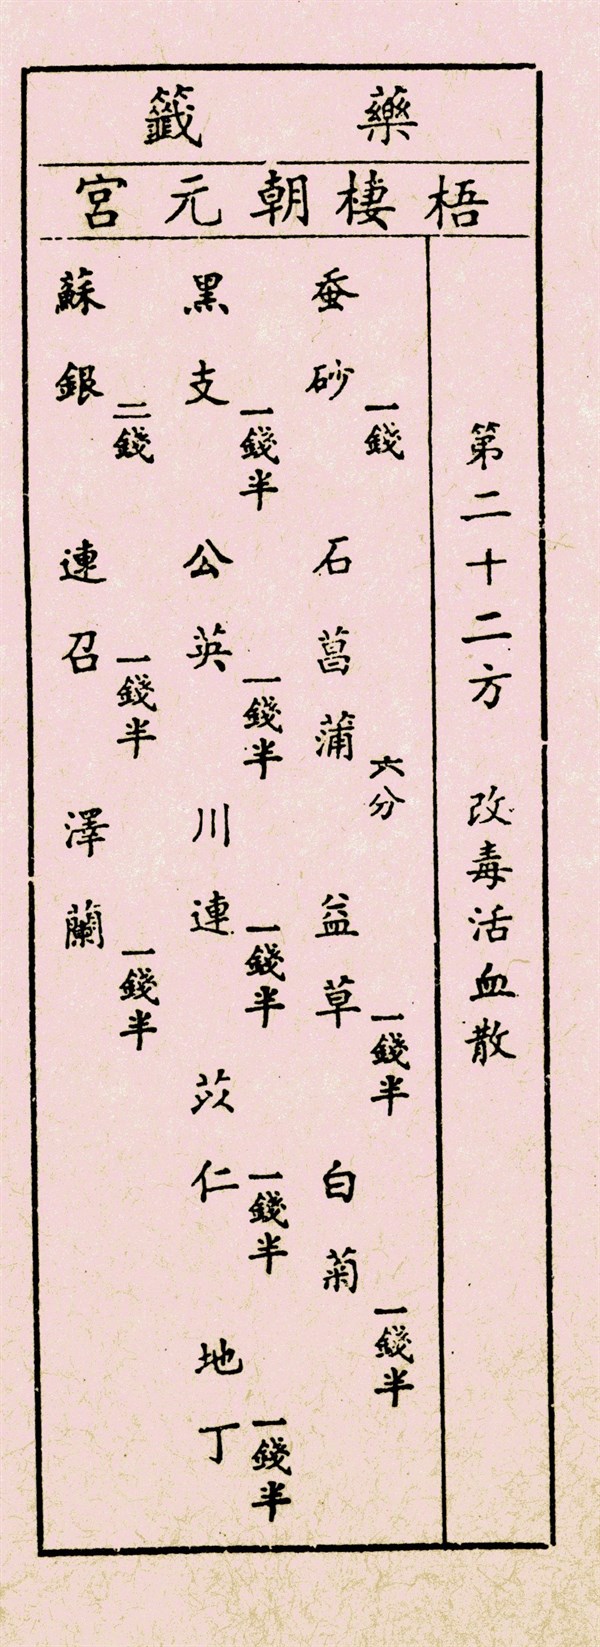 藥籤
梧棲朝元宮
第二十二方 改毒活血散
蚕砂一錢 石菖蒲六分 益草一錢半 白菊一錢半
黑支一錢半 公英一錢半 川連一錢半 苡仁一錢半 地丁一錢半
蘇銀二錢 連召一錢半 澤蘭一錢半